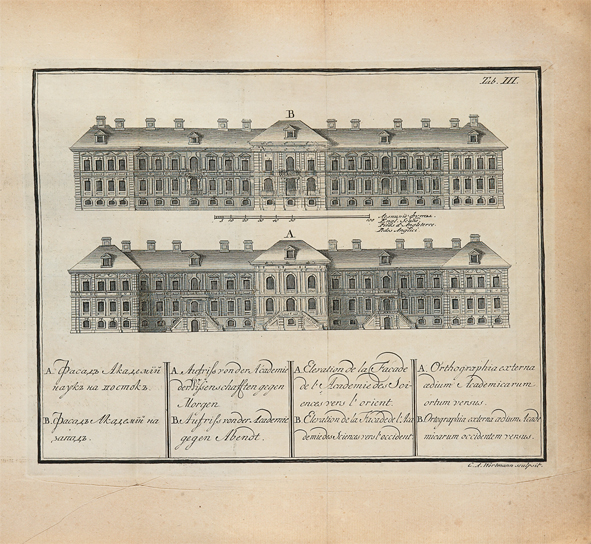 Tab. III.
B
5 10 20 30 40 50 100
Engl. Schue.
Pieds d'Angleterre.
Pedes Anglici
A
A. Фасадъ Академїй
наукъ на востокъ.
B. Фасадъ Академїй на
западъ.
A. Aufriss von der Academie
der Wissenschafften gegen
Morgen.
B. Aufriss von der Academie
gegen Abendt.
A. Elevation de la Facade
de l'Academie des Sci-
ences vers l'orient.
B. Elevation de la Facade de l'Aca
demie des Sciences vers l'occident.
A. Orthographia externa
ædium Academicarum
ortum versus.
B. Ortographia externa ædium Acade
micarum occidentem versus.
C. A. Wortmann sculpsit.